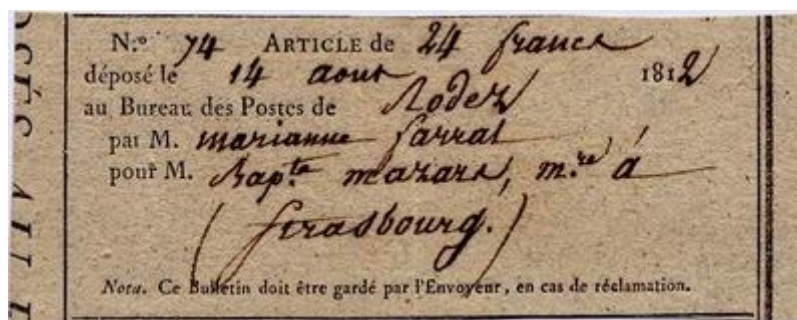 N.º 74 ARTICLE de 24 francs
déposé le 14 aout 1812
au Bureau des Postes de Rodez
par M. marianne
pour M. Bapte mazars, m.re á
(strasbourg.)
Nota. Ce Bulletin doit être gardé par l'Envoyeur, en cas de réclamation.